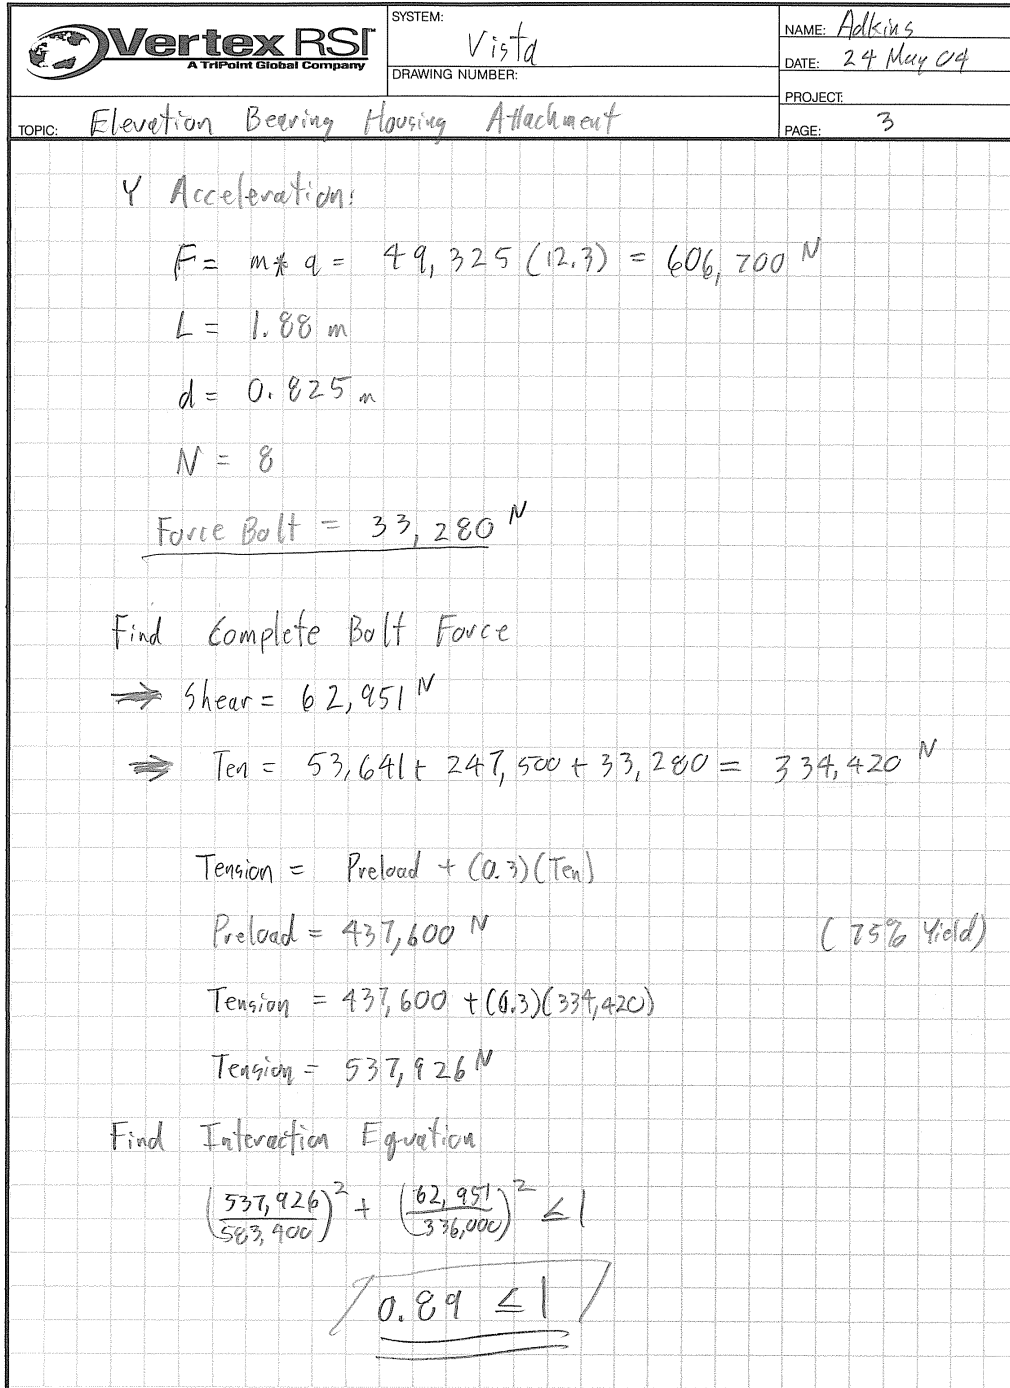 Vertex RSI
A TriPoint Global Company
SYSTEM: Vista
DRAWING NUMBER:
NAME: Adkins
DATE: 24 May 04
PROJECT:
PAGE: 3
TOPIC: Elevation Bearing Housing Attachment
Y Acceleration:
F = m * a = 49,325 (12.3) = 606,700 N
L = 1.88 m
d = 0.825 m
N = 8
Force Bolt = 33,280 N
Find Complete Bolt Force
⇒ Shear = 62,951 N
⇒ Ten = 53,641 + 247,500 + 33,280 = 334,420 N
Tension = Preload + (0.3)(Ten)
Preload = 437,600 N (75% Yield)
Tension = 437,600 + (0.3)(334,420)
Tension = 537,926 N
Find Interaction Equation
(537,926/583,400)² + (62,951/336,000)² ≤ 1
0.89 ≤ 1